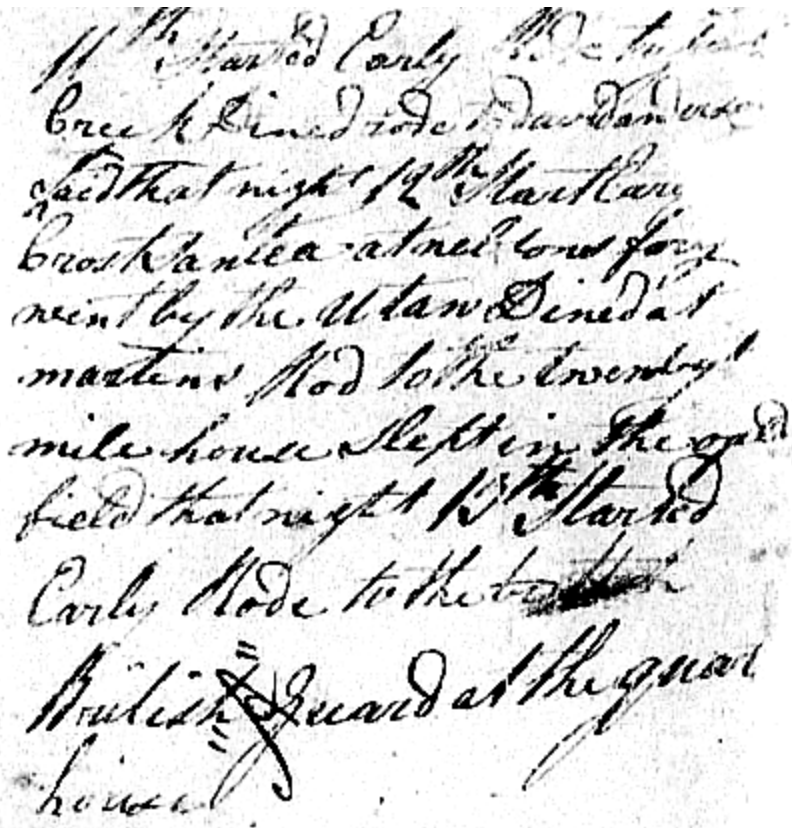 11th Started Early Rode to
Creek Dined rode to david anderson
Said that night 12th Start Ear
Crost Santea at nelsons fory
wint by the Utaw Dined at
martins Rod to the twenty
mile house Slept in the opin
field that night 13th Started
Early Rode to the
British Guard at the quar
house